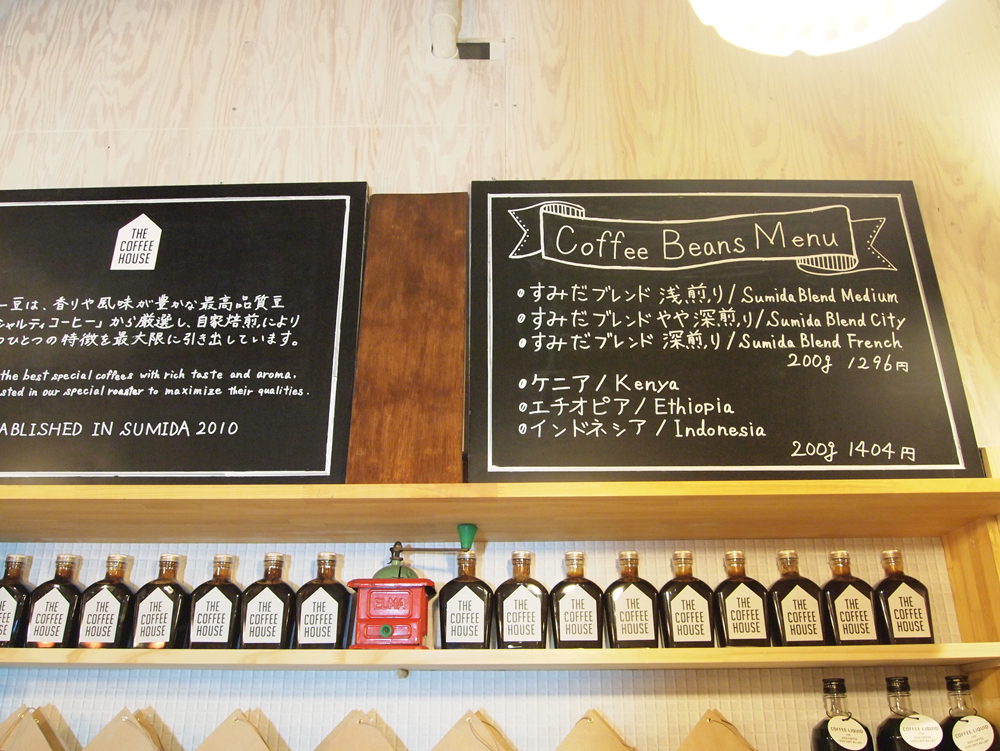 THE
COFFEE
HOUSE
ー豆は、香りや風味が豊かな最高品質豆
シャルティコーヒー」から厳選し、自家焙煎により
つひとつの特徴を最大限に引き出しています。
the best special coffees with rich taste and aroma,
sted in our special roaster to maximize their qualities.
ABLISHED IN SUMIDA 2010
Coffee Beans Menu
すみだブレンド 浅煎り/Sumida Blend Medium
すみだブレンドやや深煎り/Sumida Blend City
すみだブレンド 深煎り/Sumida Blend French
200g 1296円
ケニア/Kenya
エチオピア/Ethiopia
インドネシア/Indonesia
200g 1404円
THE
COFFEE
HOUSE
THE
COFFEE
HOUSE
THE
COFFEE
HOUSE
THE
COFFEE
HOUSE
THE
COFFEE
HOUSE
THE
COFFEE
HOUSE
ELMA
THE
COFFEE
HOUSE
THE
COFFEE
HOUSE
THE
COFFEE
HOUSE
THE
COFFEE
HOUSE
THE
COFFEE
HOUSE
THE
COFFEE
HOUSE
THE
COFFEE
HOUSE
THE
COFFEE
HOUSE
THE
COFFEE
HOUSE
COFFEE LIQUID
COFFEE LIQUID
COFFEE LIQUID